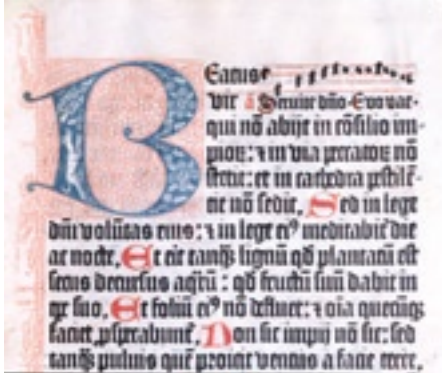 Beatus
vir a Seruite dño. Evovae.
qui nõ abijt in cõsilio im-
pioꝝ: ⁊ in via peccatoꝝ nõ
stetit: et in cathedra pestilẽ-
cie nõ sedit, Sed in lege
dñi volũtas eius: ⁊ in lege ei⁹ meditabit̃ die
ac nocte, Et erit tanq̃ lignũ qd̃ plantatũ est
secus decursus aqꝝ: qd̃ fructũ suũ dabit in
tꝑe suo, Et foliũ ei⁹ nõ defluet: ⁊ oĩa quecũqꝫ
faciet, ꝓsperabunt̃, Non sic impij nõ sic: sed
tanq̃ puluis quẽ proicit ventus a facie terre,